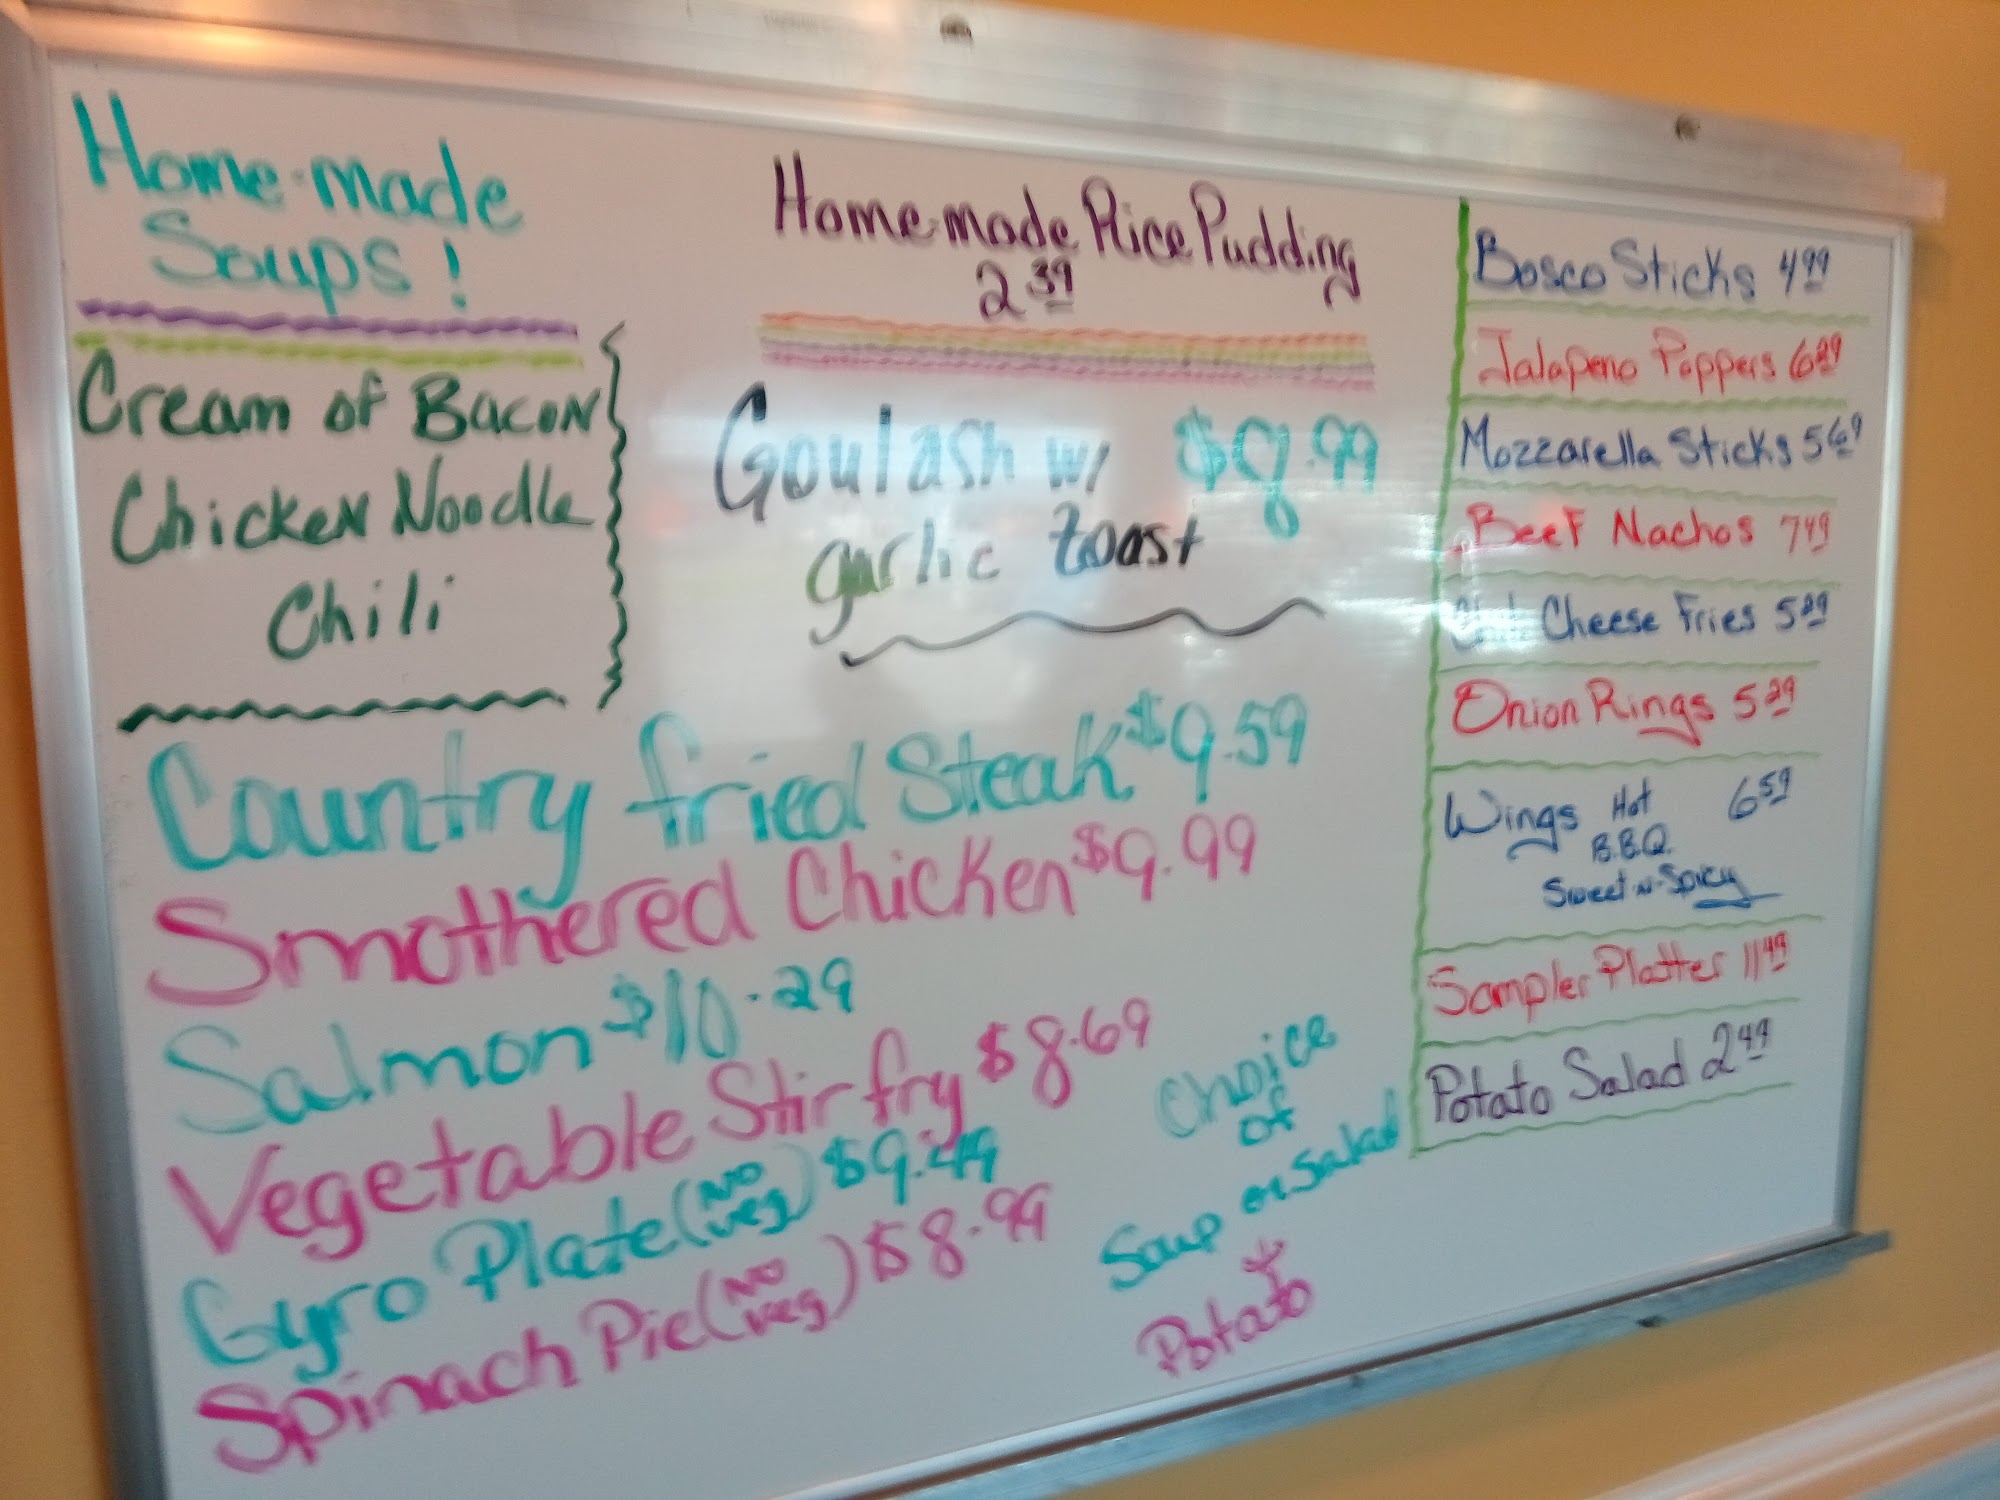 Home-made
Soups!
Cream of Bacon
Chicken Noodle
Chili
Home-made Rice Pudding
2.39
Goulash w/ $8.99
garlic toast
Country fried Steak $9.59
Smothered Chicken $9.99
Salmon $10.29
Vegetable Stir fry $8.69
Gyro Plate (No veg) $9.49
Spinach Pie (No veg) $8.99
Choice
of
Soup or Salad
+
Potato
Bosco Sticks 4.99
Jalapeno Poppers 6.29
Mozzarella Sticks 5.69
Beef Nachos 7.49
Cheese Fries 5.29
Onion Rings 5.29
Wings Hot 6.59
B.B.Q.
Sweet-N-Spicy
Sampler Platter 11.49
Potato Salad 2.49